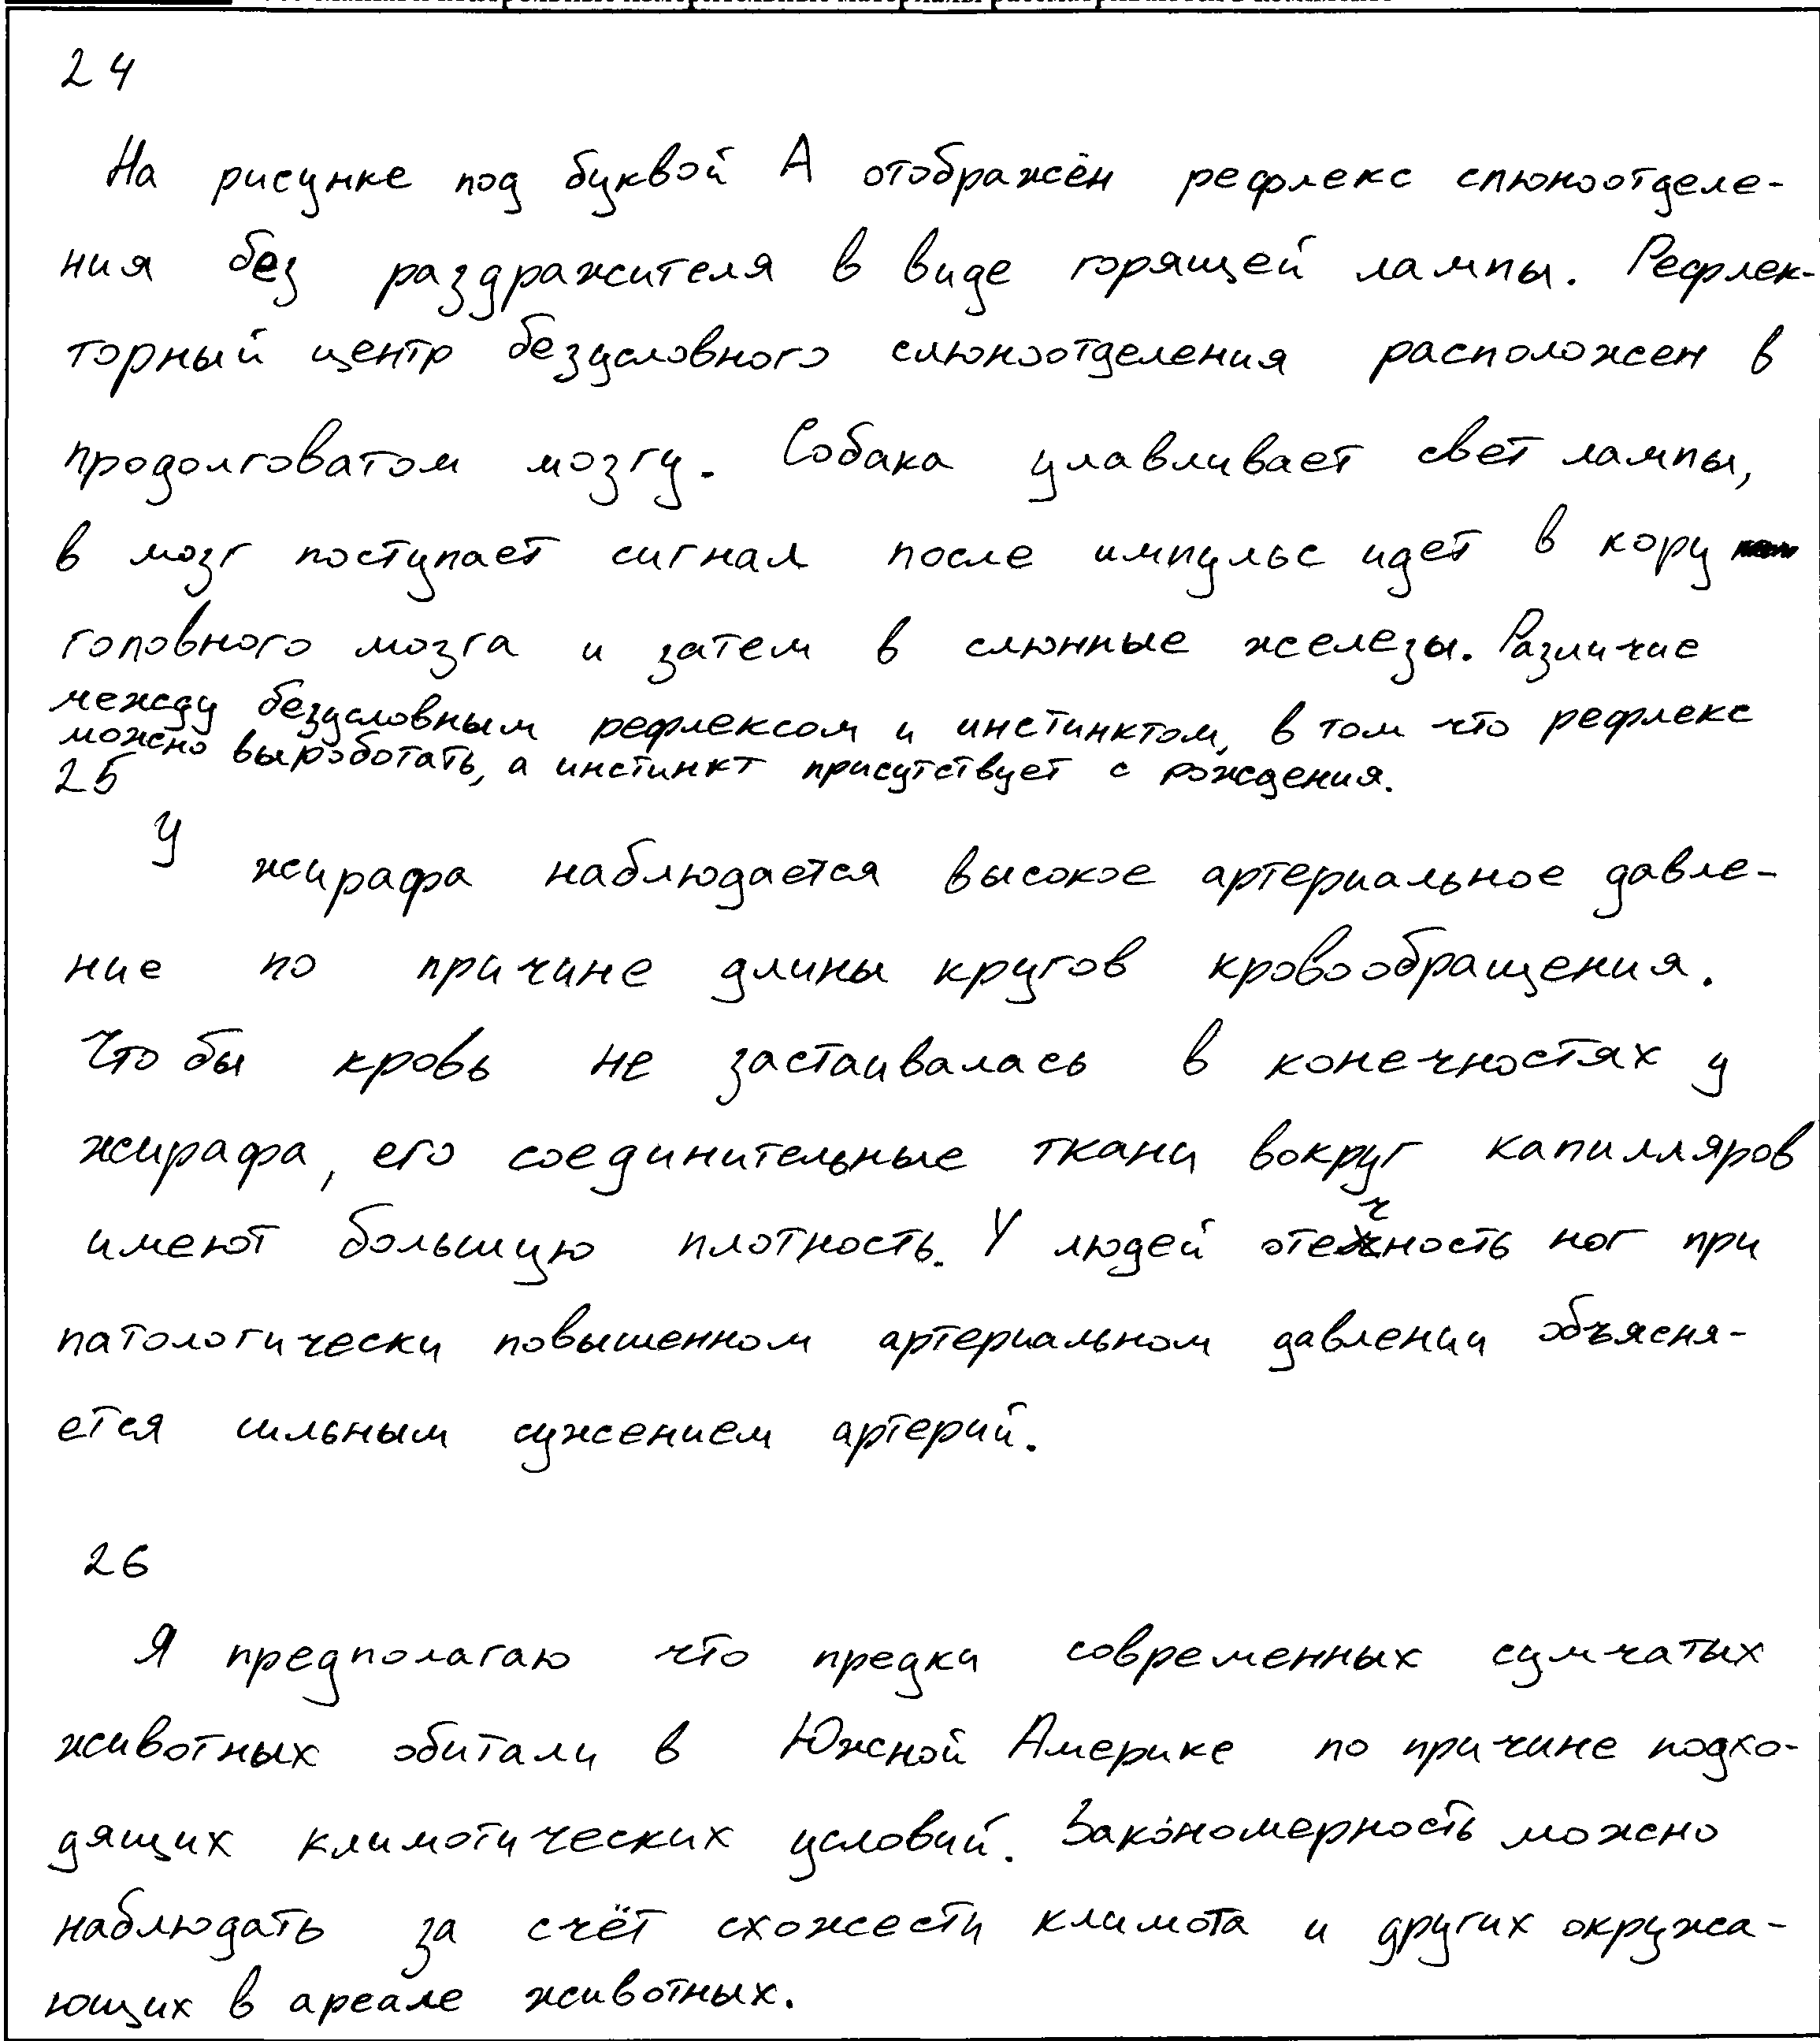 24
На рисунке под буквой А отображён рефлекс слюноотделе-
ния без раздражителя в виде горящей лампы. Рефлек-
торный центр безусловного слюноотделения расположен в
продолговатом мозгу. Собака улавливает свет лампы,
в мозг поступает сигнал после импульс идет в кору
головного мозга и затем в слюнные железы. Различие
между безусловным рефлексом и инстинктом, в том что рефлекс
можно выроботать, а инстинкт присутствует с рождения.
25
У жирафа наблюдается высокое артериальное давле-
ние по причине длины кругов кровообращения.
Что бы кровь не застаивалась в конечностях у
жирафа, его соединительные ткани вокруг капилляров
имеют большую плотность. У людей отечность ног при
патологически повышенном артериальном давлении объясня-
ется сильным сужением артерий.
26
Я предполагаю что предки современных сумчатых
животных обитали в Южной Америке по причине подхо-
дящих климотических условий. Закономерность можно
наблюдать за счёт схожести климота и других окружа-
ющих в ареале животных.